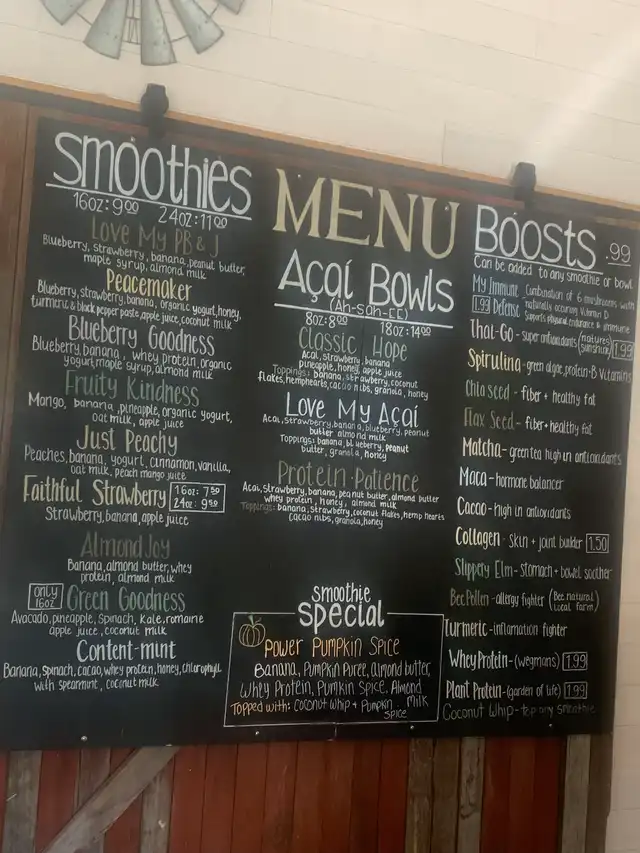 Smoothies
16oz: 9.00 24oz: 11.00
Love My PB & J
Blueberry, strawberry, banana, peanut butter,
maple syrup, almond milk
Peacemaker
Blueberry, strawberry, banana, organic yogurt, honey,
turmeric & black pepper paste, apple juice, coconut milk
Blueberry Goodness
Blueberry, banana, whey protein, organic
yogurt, maple syrup, almond milk
Fruity Kindness
Mango, banana, pineapple, organic yogurt,
oat milk, apple juice
Just Peachy
Peaches, banana, yogurt, cinnamon, vanilla,
oat milk, peach mango juice
Faithful Strawberry 16oz: 7.50
24oz: 9.50
Strawberry, banana, apple juice
Almond Joy
Banana, almond butter, whey
protein, almond milk
only
16oz
Green Goodness
Avocado, pineapple, spinach, kale, romaine
apple juice, coconut milk
Content-mint
Banana, spinach, cacao, whey protein, honey, chlorophyll
with spearmint, coconut milk
MENU
Açaí Bowls
(Ah-sah-EE)
8oz: 8.00 18oz: 14.00
Classic Hope
Acai, strawberry, banana
pineapple, honey, apple juice
Toppings: banana, strawberry, coconut
flakes, hemphearts, cacao nibs, granola, honey
Love My Açaí
Acai, strawberry, banana, blueberry, peanut
butter almond milk
Toppings: banana, blueberry, peanut
butter, granola, honey
Protein Patience
Acai, strawberry, banana, peanut butter, almond butter
whey protein, honey, almond milk
Toppings: banana, strawberry, coconut flakes, hemp hearts
cacao nibs, granola, honey
smoothie
special
Power Pumpkin Spice
Banana, Pumpkin Puree, almond butter,
Whey Protein, Pumpkin Spice, Almond
Milk
Topped with: Coconut Whip + Pumpkin
Spice
Boosts .99
Can be added to any smoothie or bowl
My Immune Combination of 6 mushrooms with
1.99 Defense naturally occuring Vitamin D
Supports physical endurance & immune
Thai-Go - super antioxidants (natures
sunshine) 1.99
Spirulina - green algae, protein + B Vitamins
Chia seed - fiber + healthy fat
Flax Seed - fiber + healthy fat
Matcha - green tea high in antioxidants
Maca - hormone balancer
Cacao - high in antioxidants
Collagen - skin + joint builder 1.50
Slippery Elm - stomach + bowel soother
Bee Pollen - allergy fighter (Bee natural
local farm)
Turmeric - inflamation fighter
Whey Protein - (wegmans) 1.99
Plant Protein - (garden of life) 1.99
Coconut Whip - top any smoothie